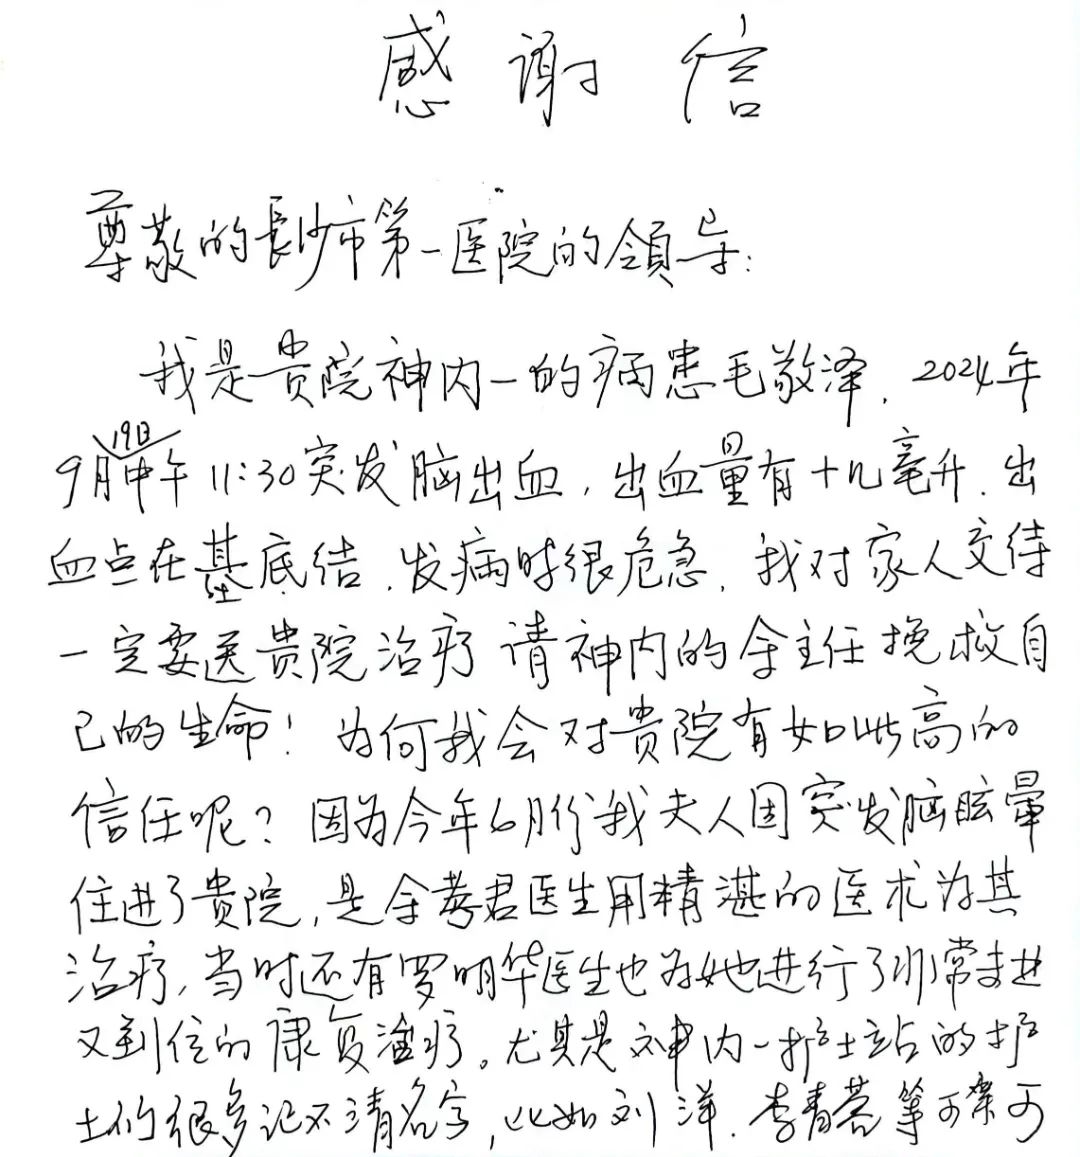 感谢信
尊敬的長沙市第一医院的領导:
我是贵院神内一的病患毛敬泽.2024年
9月19日中午11:30突发脑出血,出血量有十几毫升.出
血点在基底结.发病时很危急.我对家人交待
一定要送贵院治疗请神内的余主任挽救自
己的生命!为何我会对贵院有如此高的
信任呢?因为今年6月份我夫人因突发脑眩晕
住进了贵院,是余孝君医生用精湛的医术为其
治疗,当时还有罗明华医生也为她进行了非常
又到位的康复治疗。尤其是神内一护士站的护
士们很多记不清名字,比如刘洋.李青蓉等可亲可